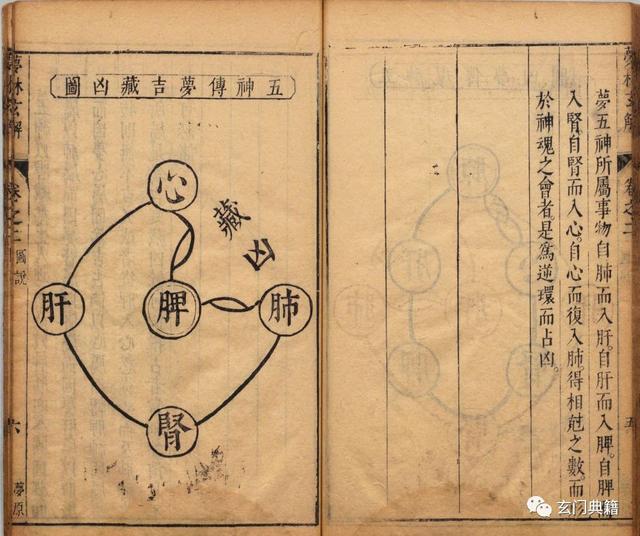 夢林玄解
卷之二
五
夢五神所屬事物自肺而入肝。自肝而入脾。自脾而
入腎。自腎而入心。自心而復入肺。得相尅之數。而
於神魂之會者。是爲逆環而占凶。
五神傳夢吉藏凶圖
心
藏凶
肺
脾
肝
腎
夢林玄解
卷之二
圖說
六
夢原
玄门典籍